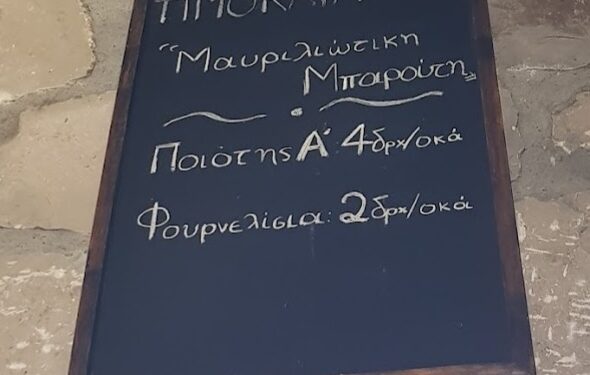 "Μαυριλιώτικη
Μπαρούτη"
Ποιότης Α' 4 δρχ/οκά
Φουρνελίσια: 2 δρχ/οκά